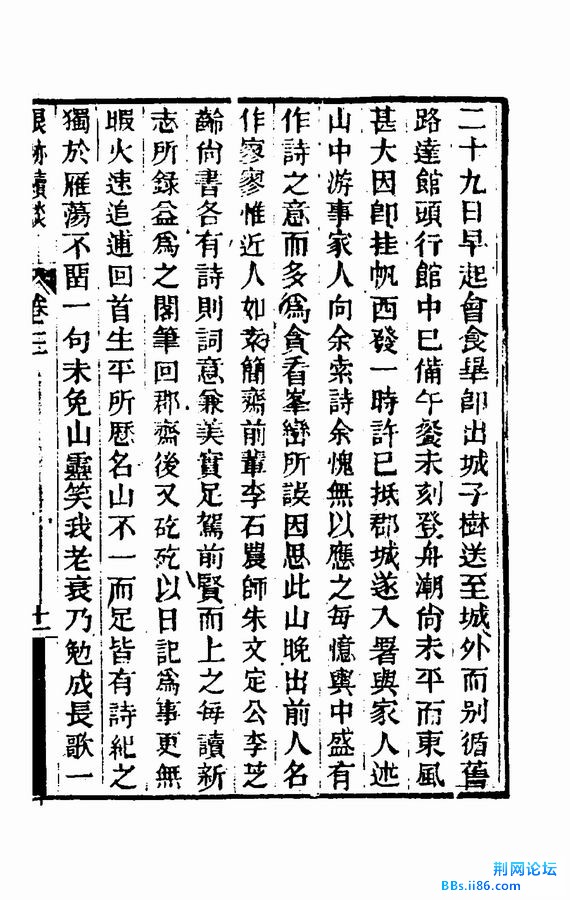 二十九日早起會食畢即出城子樹送至城外而别循舊
路達館頭行館中已備午餐未刻登舟潮尚未平而東風
甚大因卽挂帆西發一時許已抵郡城遂入署與家人述
山中游事家人向余索詩余愧無以應之每憶輿中盛有
作詩之意而多爲貪看峯巒所誤因思此山晚出前人名
作寥寥惟近人如袁簡齋前輩李石農師朱文定公李芝
齡尚書各有詩則詞意兼美實足駕前賢而上之每讀新
志所録益爲之閣筆回郡齋後又矻矻以日記爲事更無
暇火速追逋回首生平所歴名山不一而足皆有詩紀之
獨於雁蕩不畱一句未免山靈笑我老衰乃勉成長歌一
浪跡續談
卷二
十一
荆网论坛
BBs.ii86.com